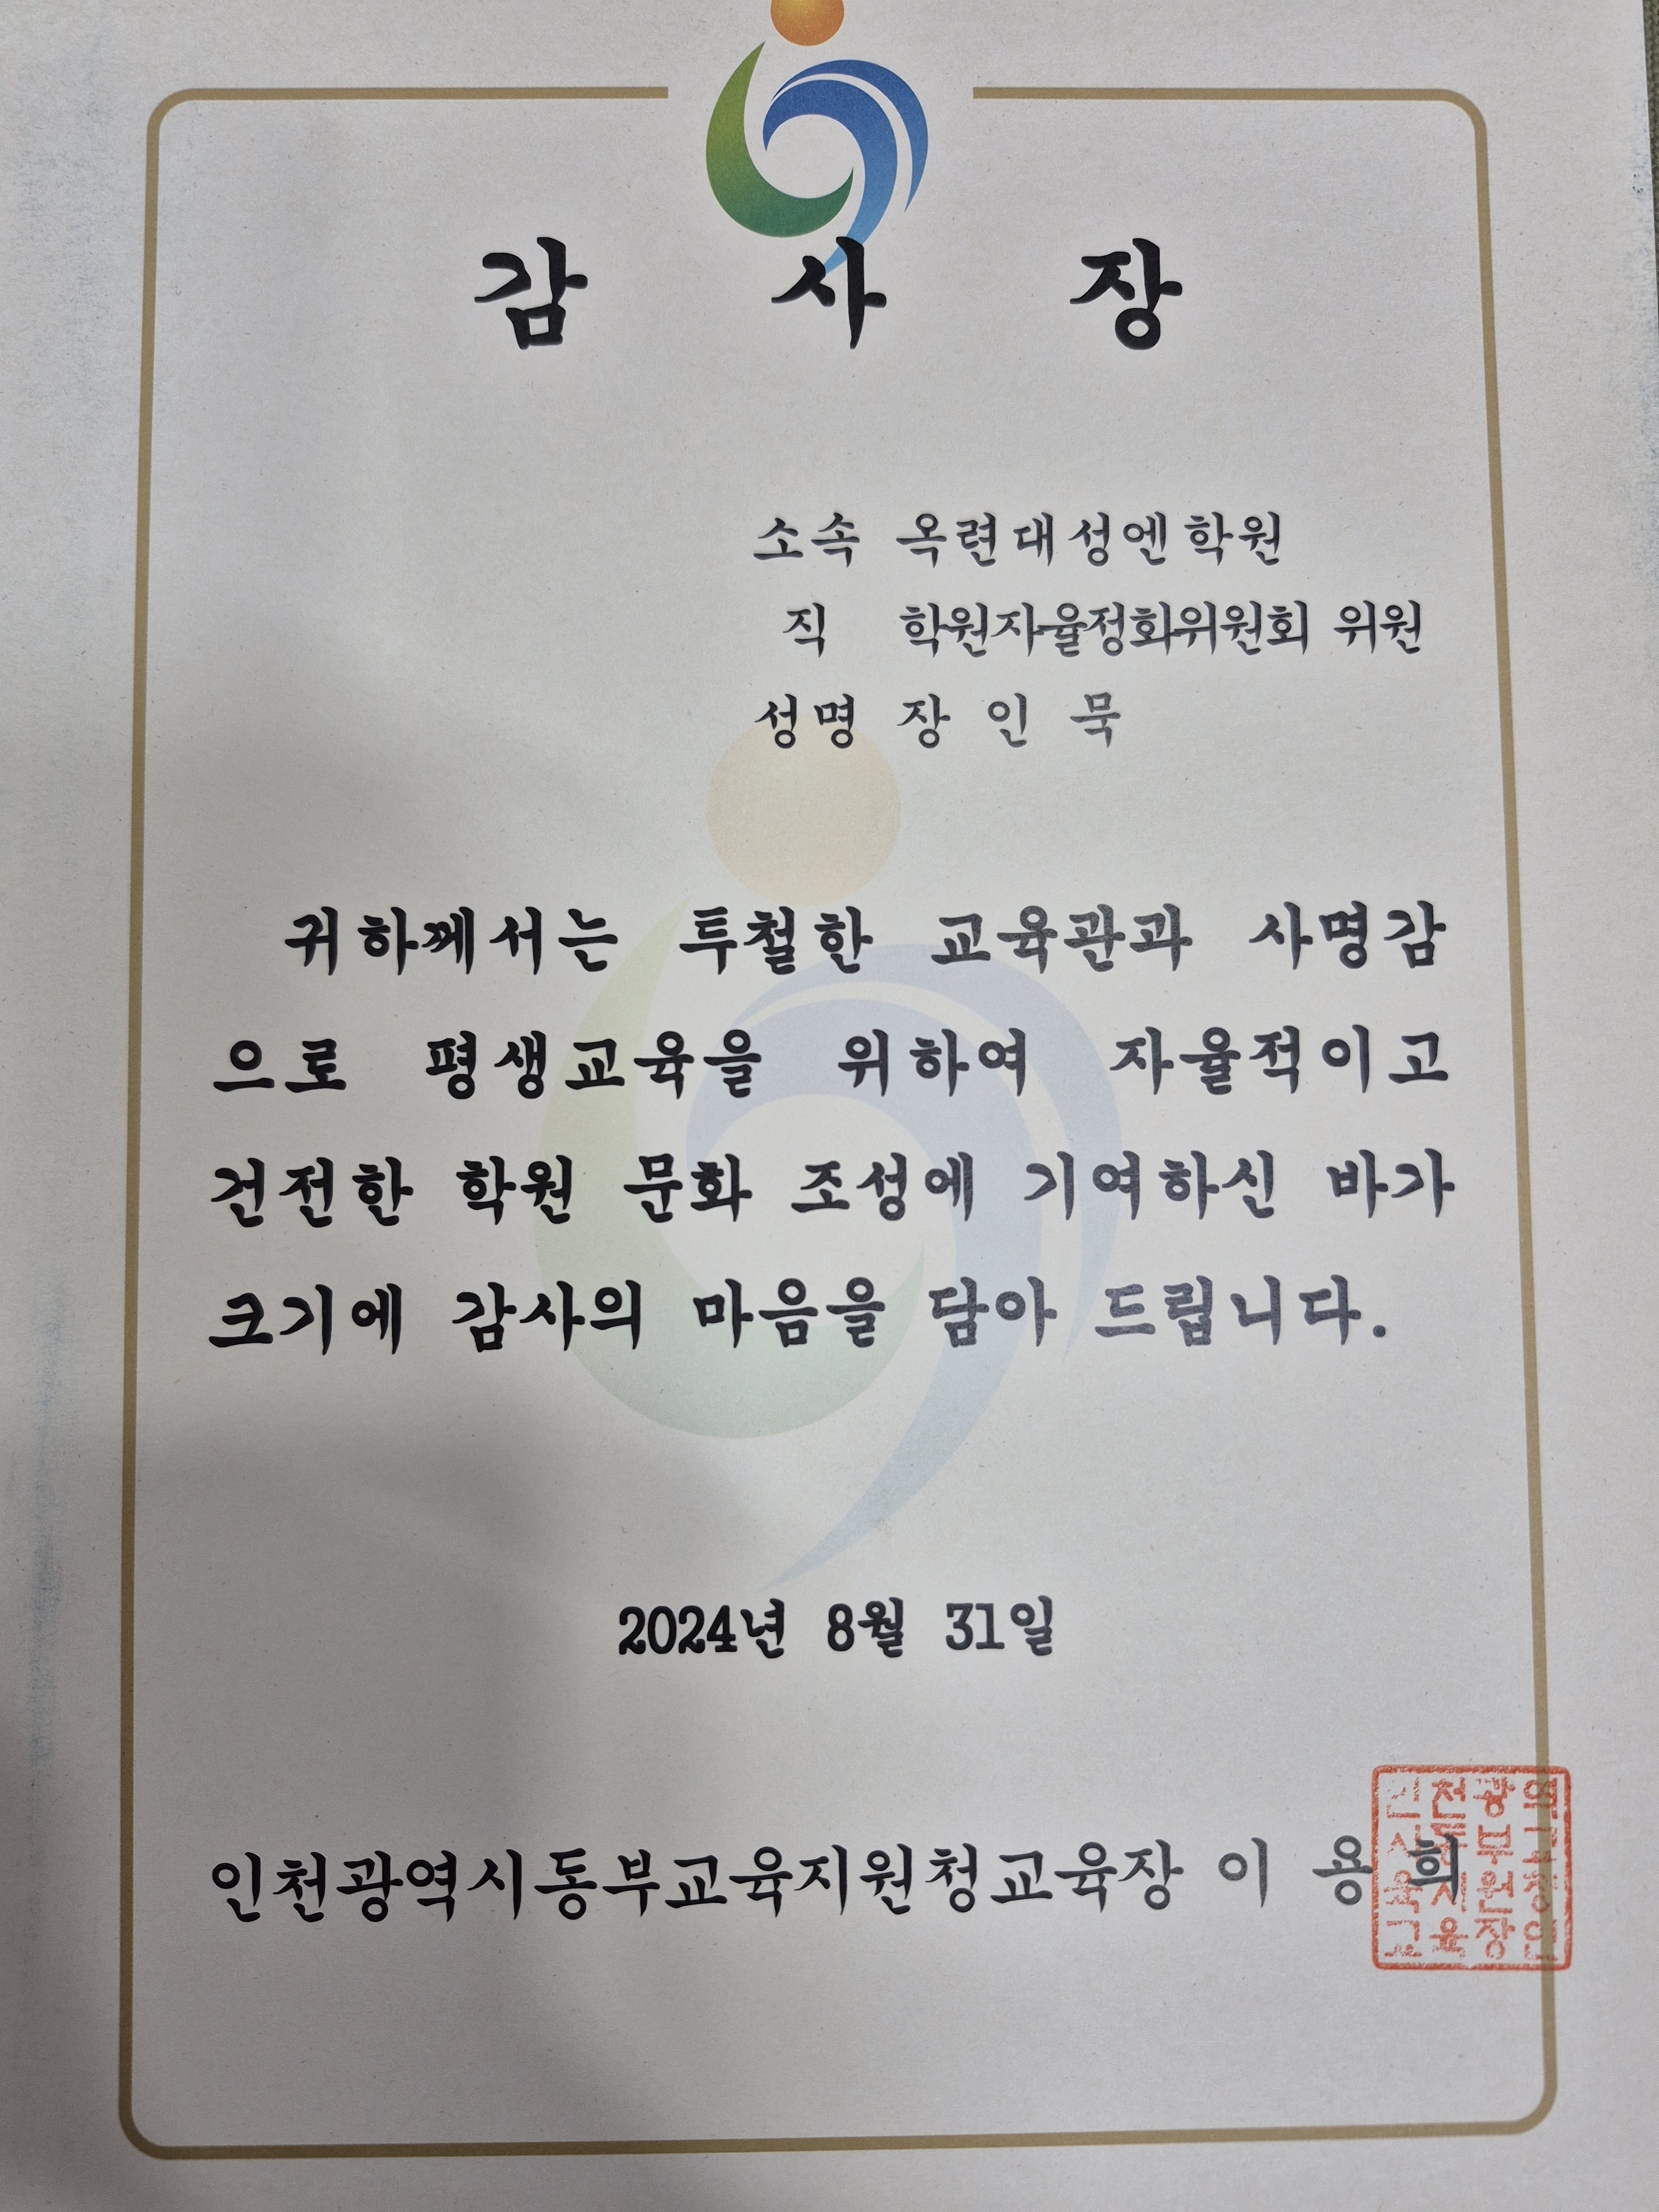 감 사 장
소속 옥련대성엔학원
직 학원자율정화위원회 위원
성명 장 인 묵
귀하께서는 투철한 교육관과 사명감
으로 평생교육을 위하여 자율적이고
건전한 학원 문화 조성에 기여하신 바가
크기에 감사의 마음을 담아 드립니다.
2024년 8월 31일
인천광역시동부교육지원청교육장 이 용 희
인천광역
시동부교
육지원청
교육장인